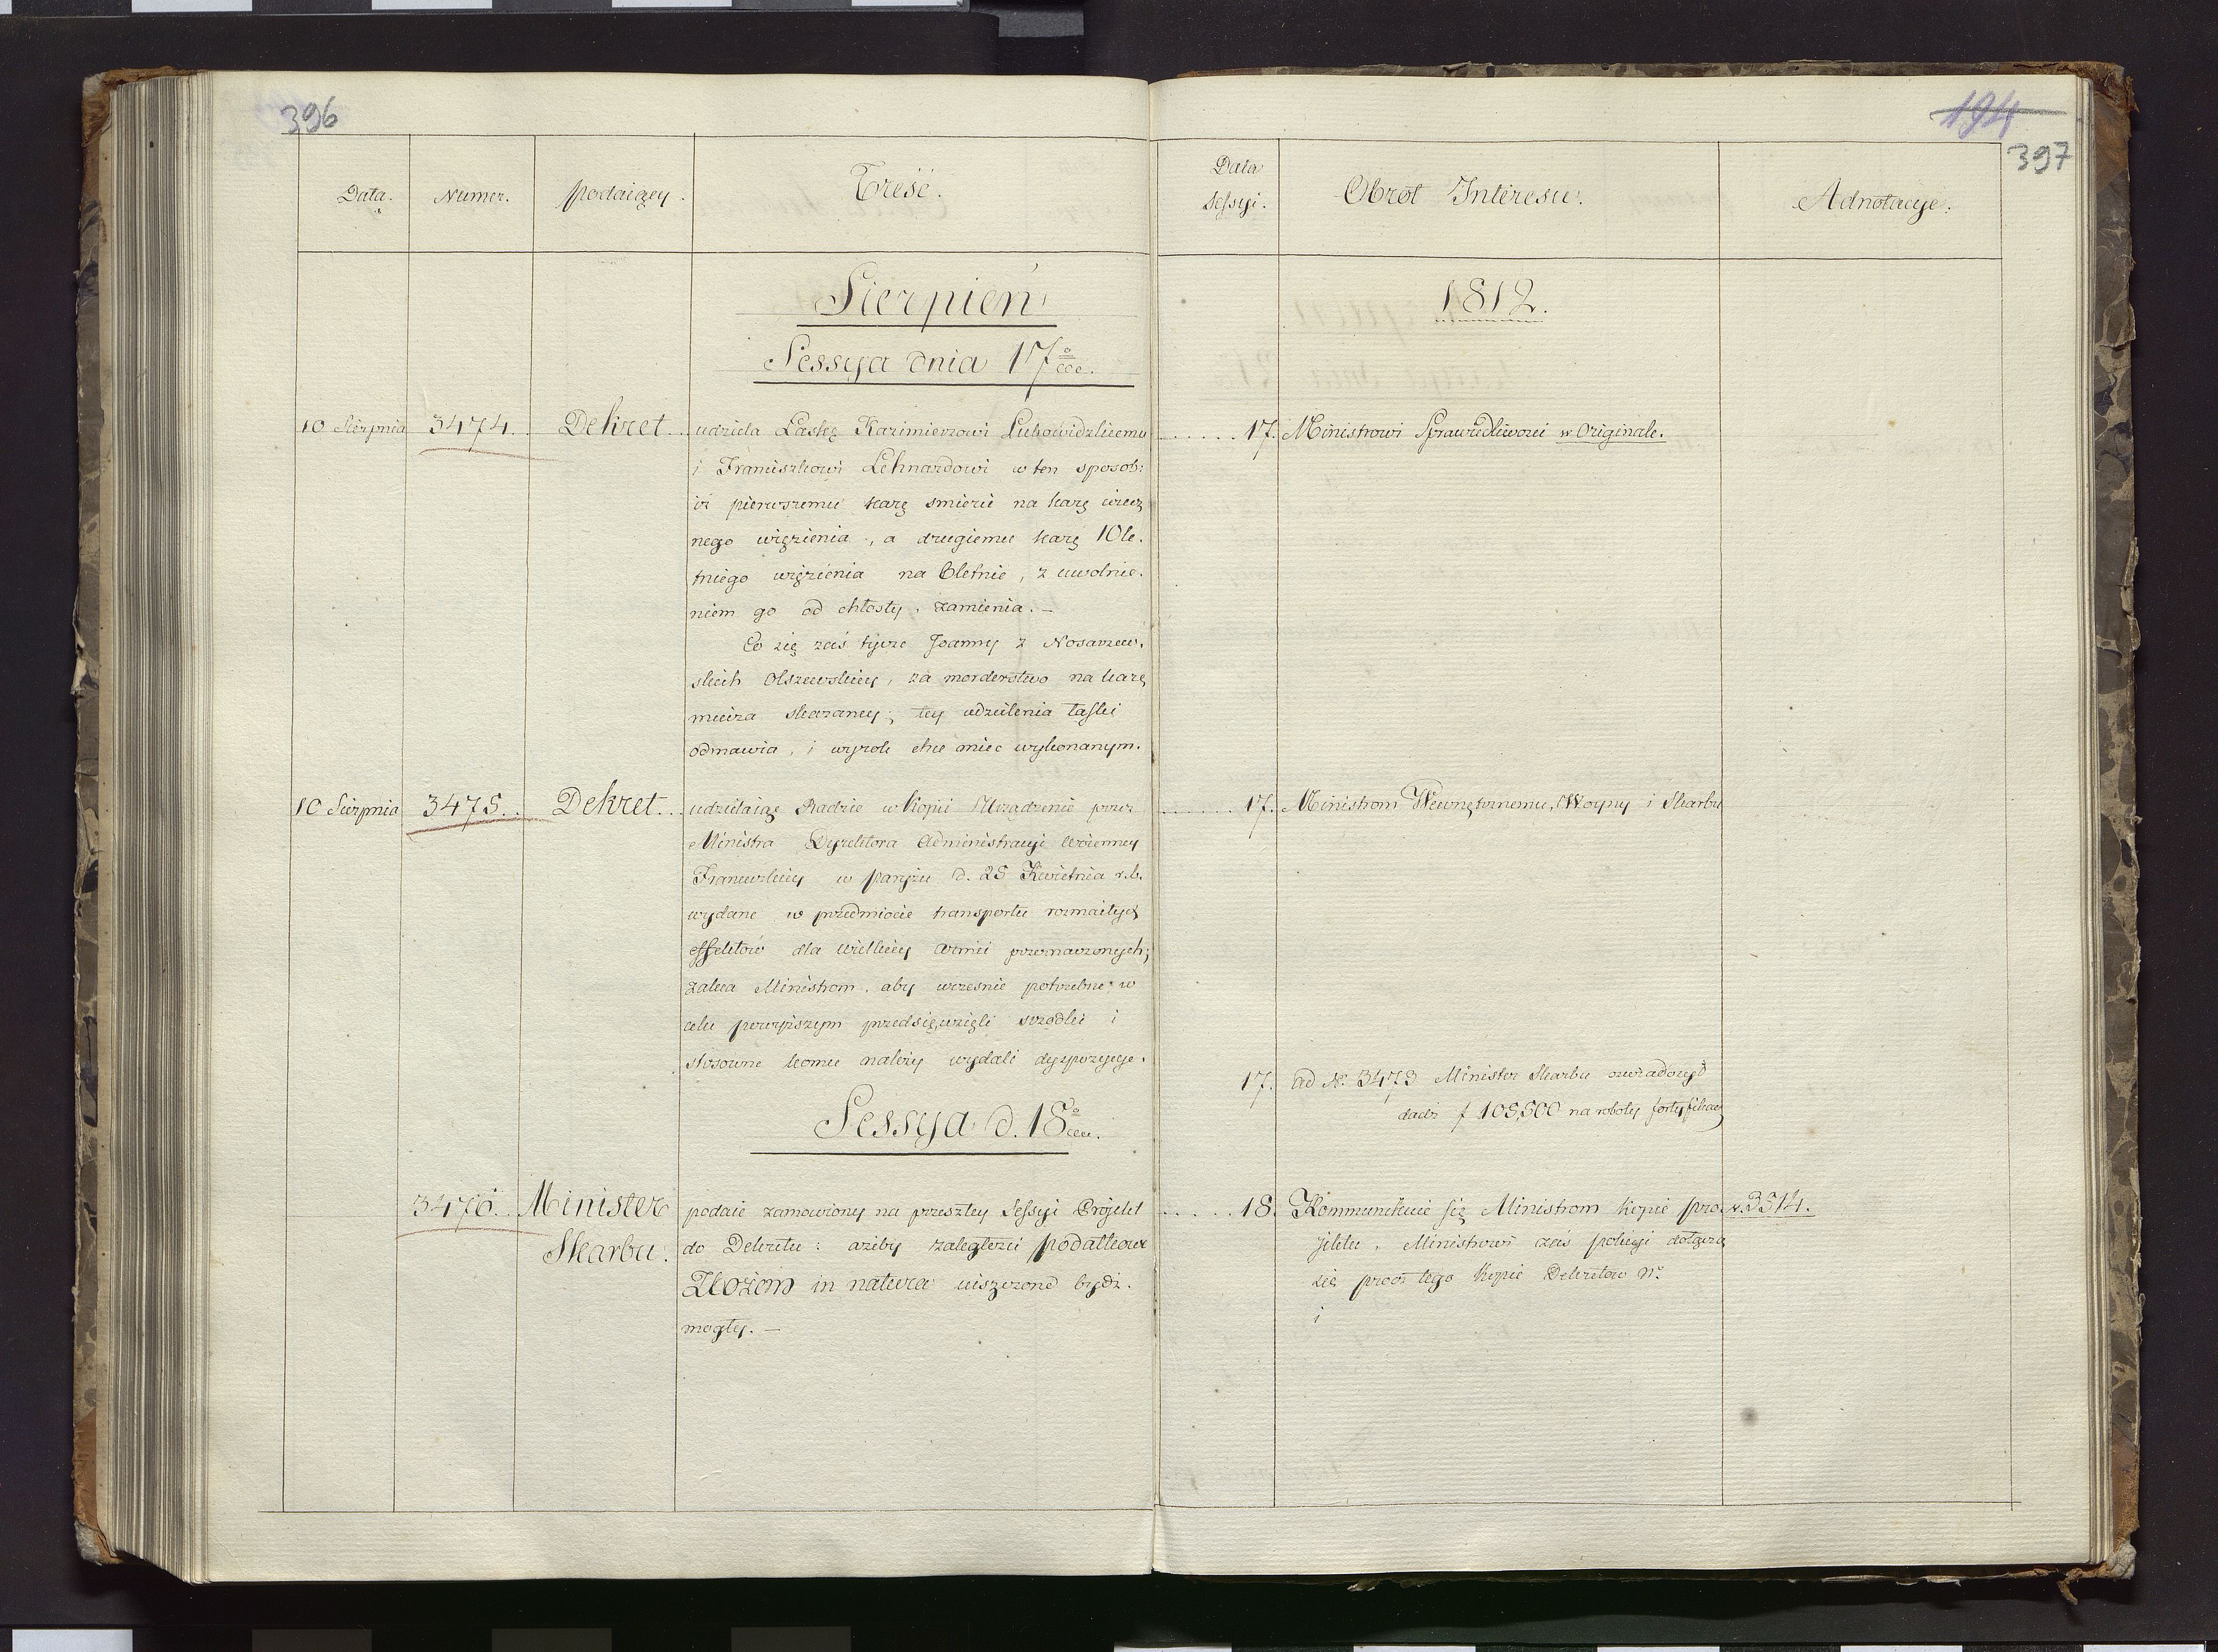 396
Data. Numer. podaiący. Treść.
Sierpień
Sessya dnia 17º
10 Sierpnia 3474. Dekret udziela Łaskę Kazimierzowi Lukowidzkiemu
i Franciszkowi Lehnardowi w ten sposob:
iż pierwszemu karę smierci na karę wiecz
nego więzienia, a drugiemu karę 10le.
tniego więzienia na 6letnie, z uwolnie.
niem go od chłosty, zamienia. —
Co się zaś tycze Joanny z Nosarzew.
skich Olszewskiey, za morderstwo na karę
miecza skazaney; tey udzielenia łaski
odmawia, i wyrok chce mieć wykonanym.
10 Sierpnia 3475. Dekret udzielaiąc Radzie w kopii Urządzenie przez
Ministra Dyrektora Administracyi Woienney
Francuzkiey w paryżu d. 25 Kwietnia r.b.
wydane w przedmiocie transportu rozmaitych
effektow dla wielkiey Armii przeznaczonych;
zaleca Ministrom, aby wczesnie potrzebne w
celu powyższym przedsięwzięli srzodki i
stosowne komu należy wydali dyspozycye.
Sessya d. 18º
3476. Minister podaie zamowiony na przeszłey Sessyi Projekt
Skarbu. do Dekretu: ażeby zaległości podatkowe
Zbożem in natura uiszczone bydź
mogły. —
194
397
Data Sessyi. Obrót Interesu. Adnotacye.
1812.
17. Ministrowi Sprawiedliwości w Originale.
17. Ministrom Wewnętrznemu, Woyny i Skarbu
17. ad N. 3473 Minister Skarbu
dadź f 105,500 na roboty fortyfikac
18. Kommunikuie się Ministrom kopie pro. N. 3514.
jektu, Ministrowi zaś policyi dołącza
się procz tego kopie Dekretow Nº
i